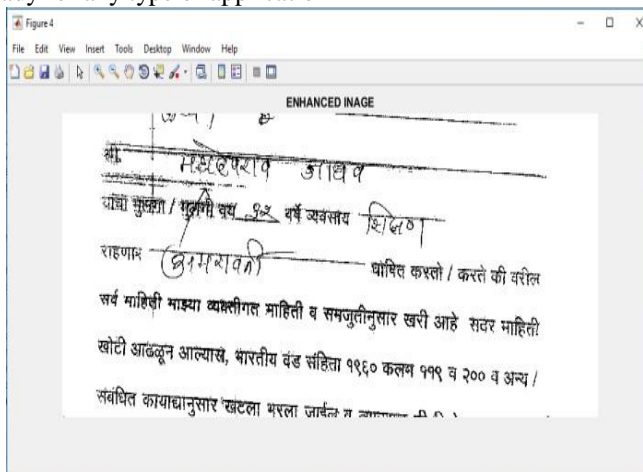 Figure 4
File Edit View Insert Tools Desktop Window Help
ENHANCED INAGE
श्री. महादेवराव जाधव
यांचा मुलगा / मुलगी वय १२ वर्षे व्यवसाय शिक्षण
राहणार अमरावती घोषित करतो / करते की वरील
सर्व माहिती माझ्या व्यक्तीगत माहिती व समजुतीनुसार खरी आहे सदर माहिती
खोटी आढळून आल्यास, भारतीय दंड संहिता १९६० कलम ११९ व २०० व अन्य /
संबंधित कायाद्यानुसार खटला भरला जाईल व